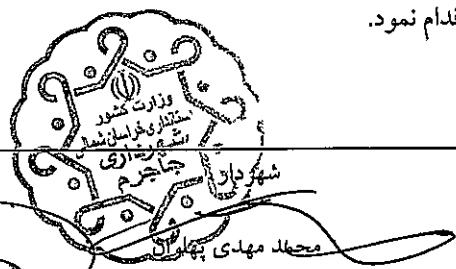 قدام نمود.
وزارت کشور
استانداری خراسان شمالی
شهرداری
جاجرم
شهردار
محمد مهدی پهلوان